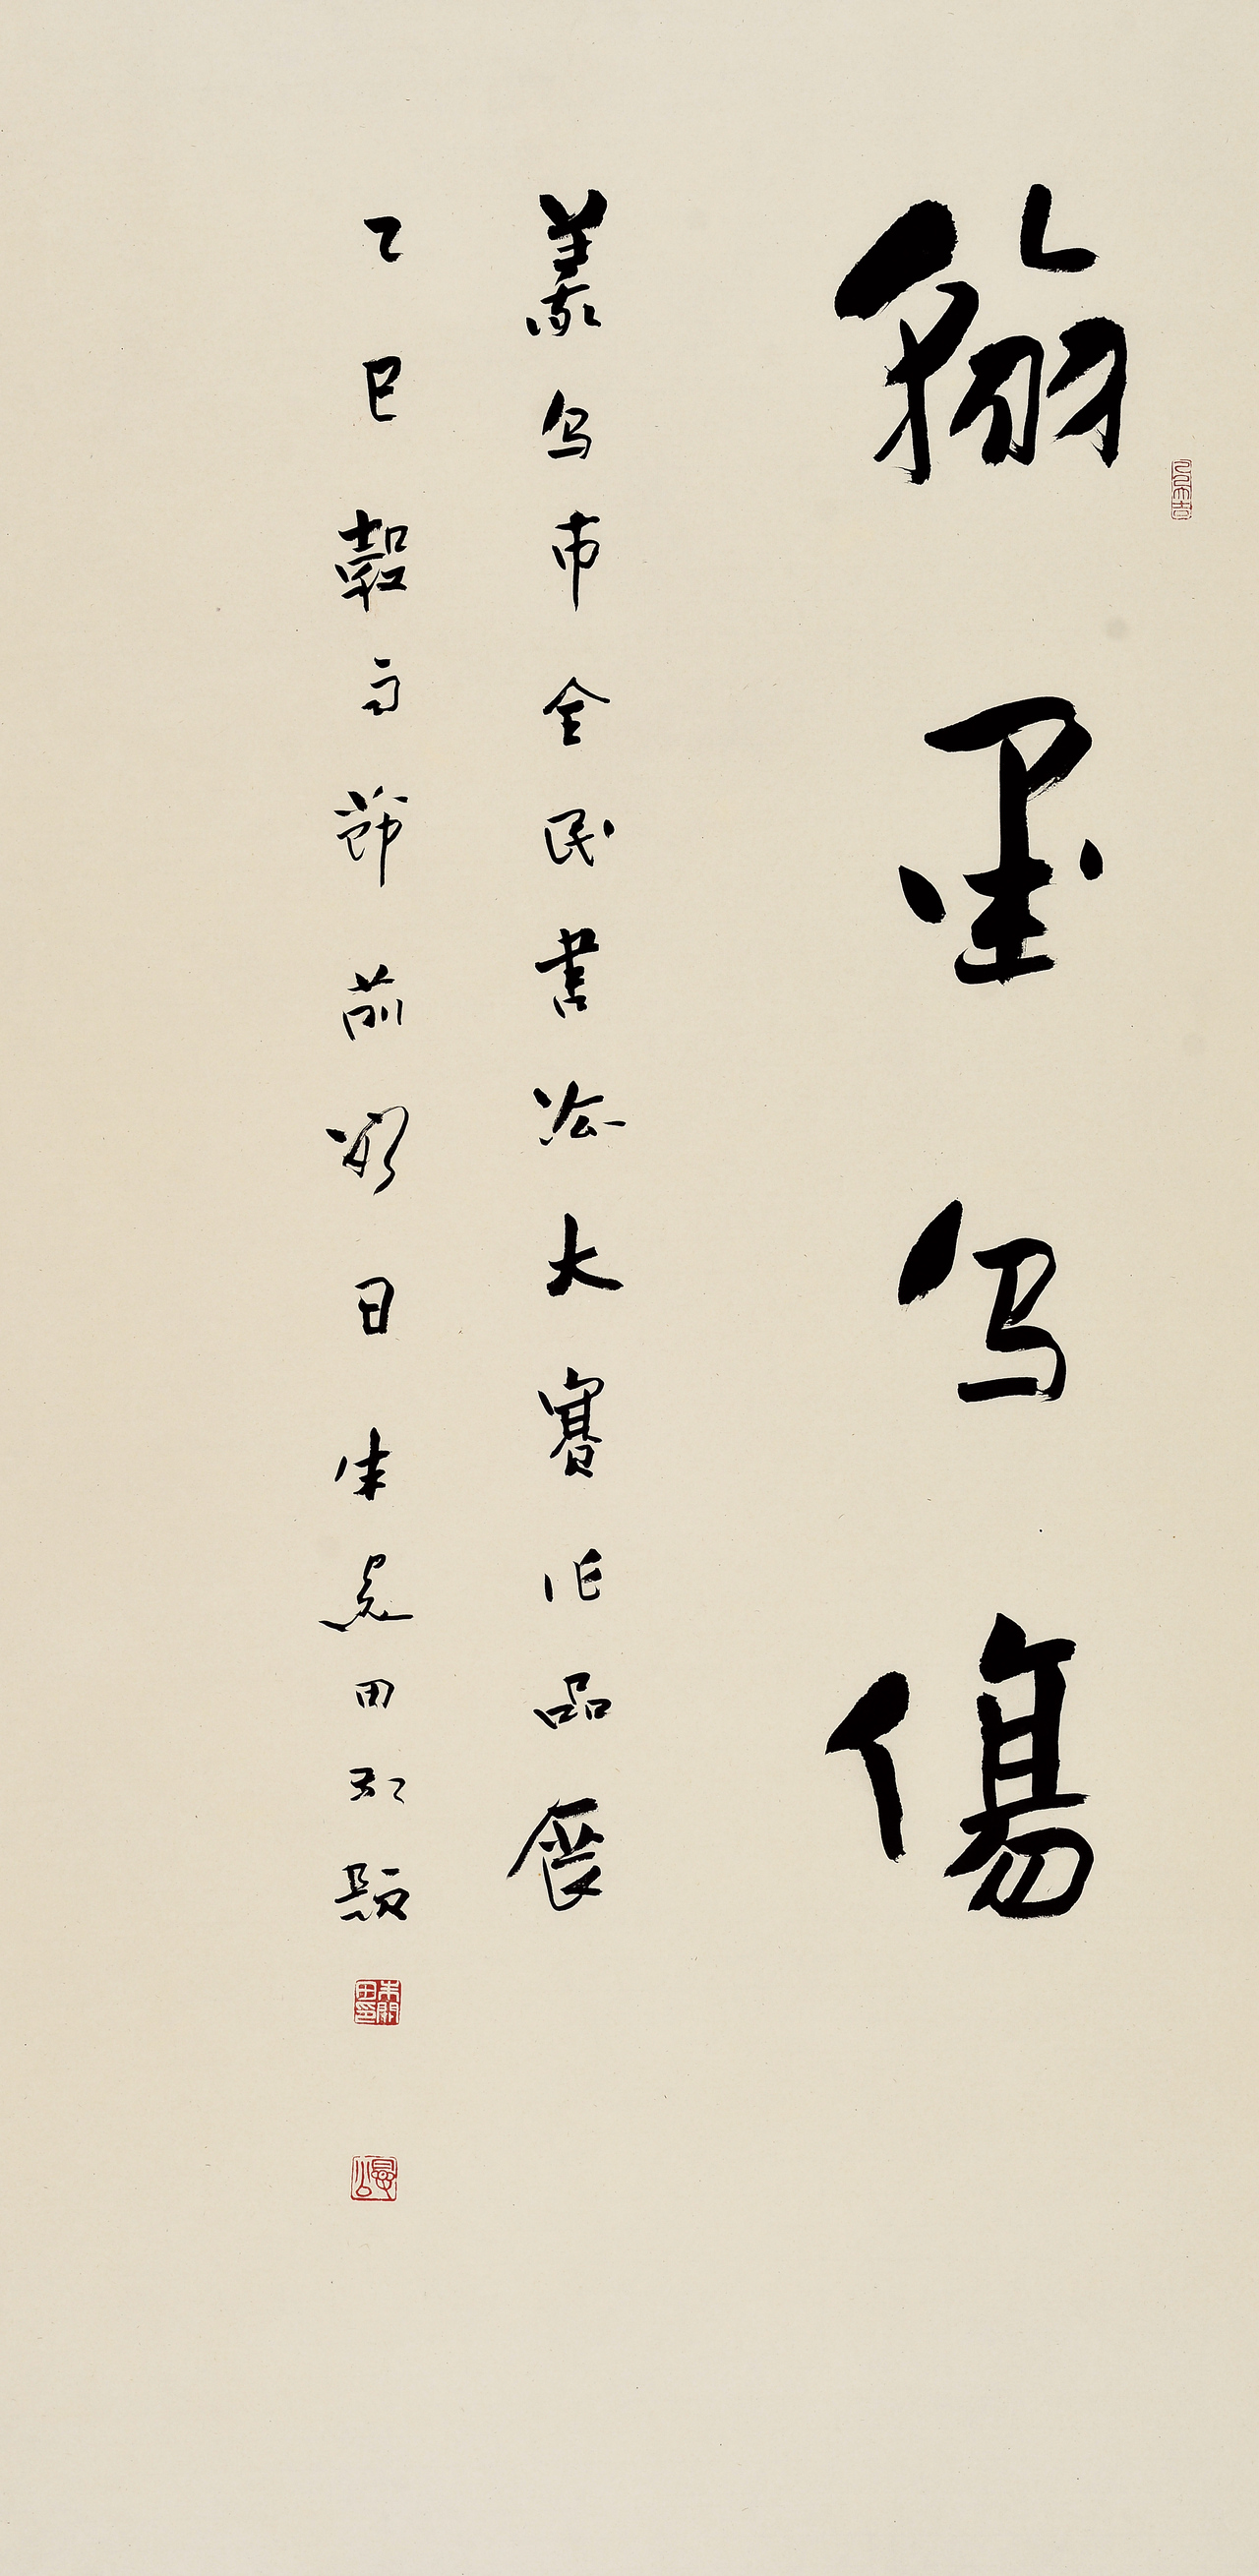 翰墨乌傷
義乌市全民書法大賽作品展
乙巳穀雨節前日朱關田題
朱關田印